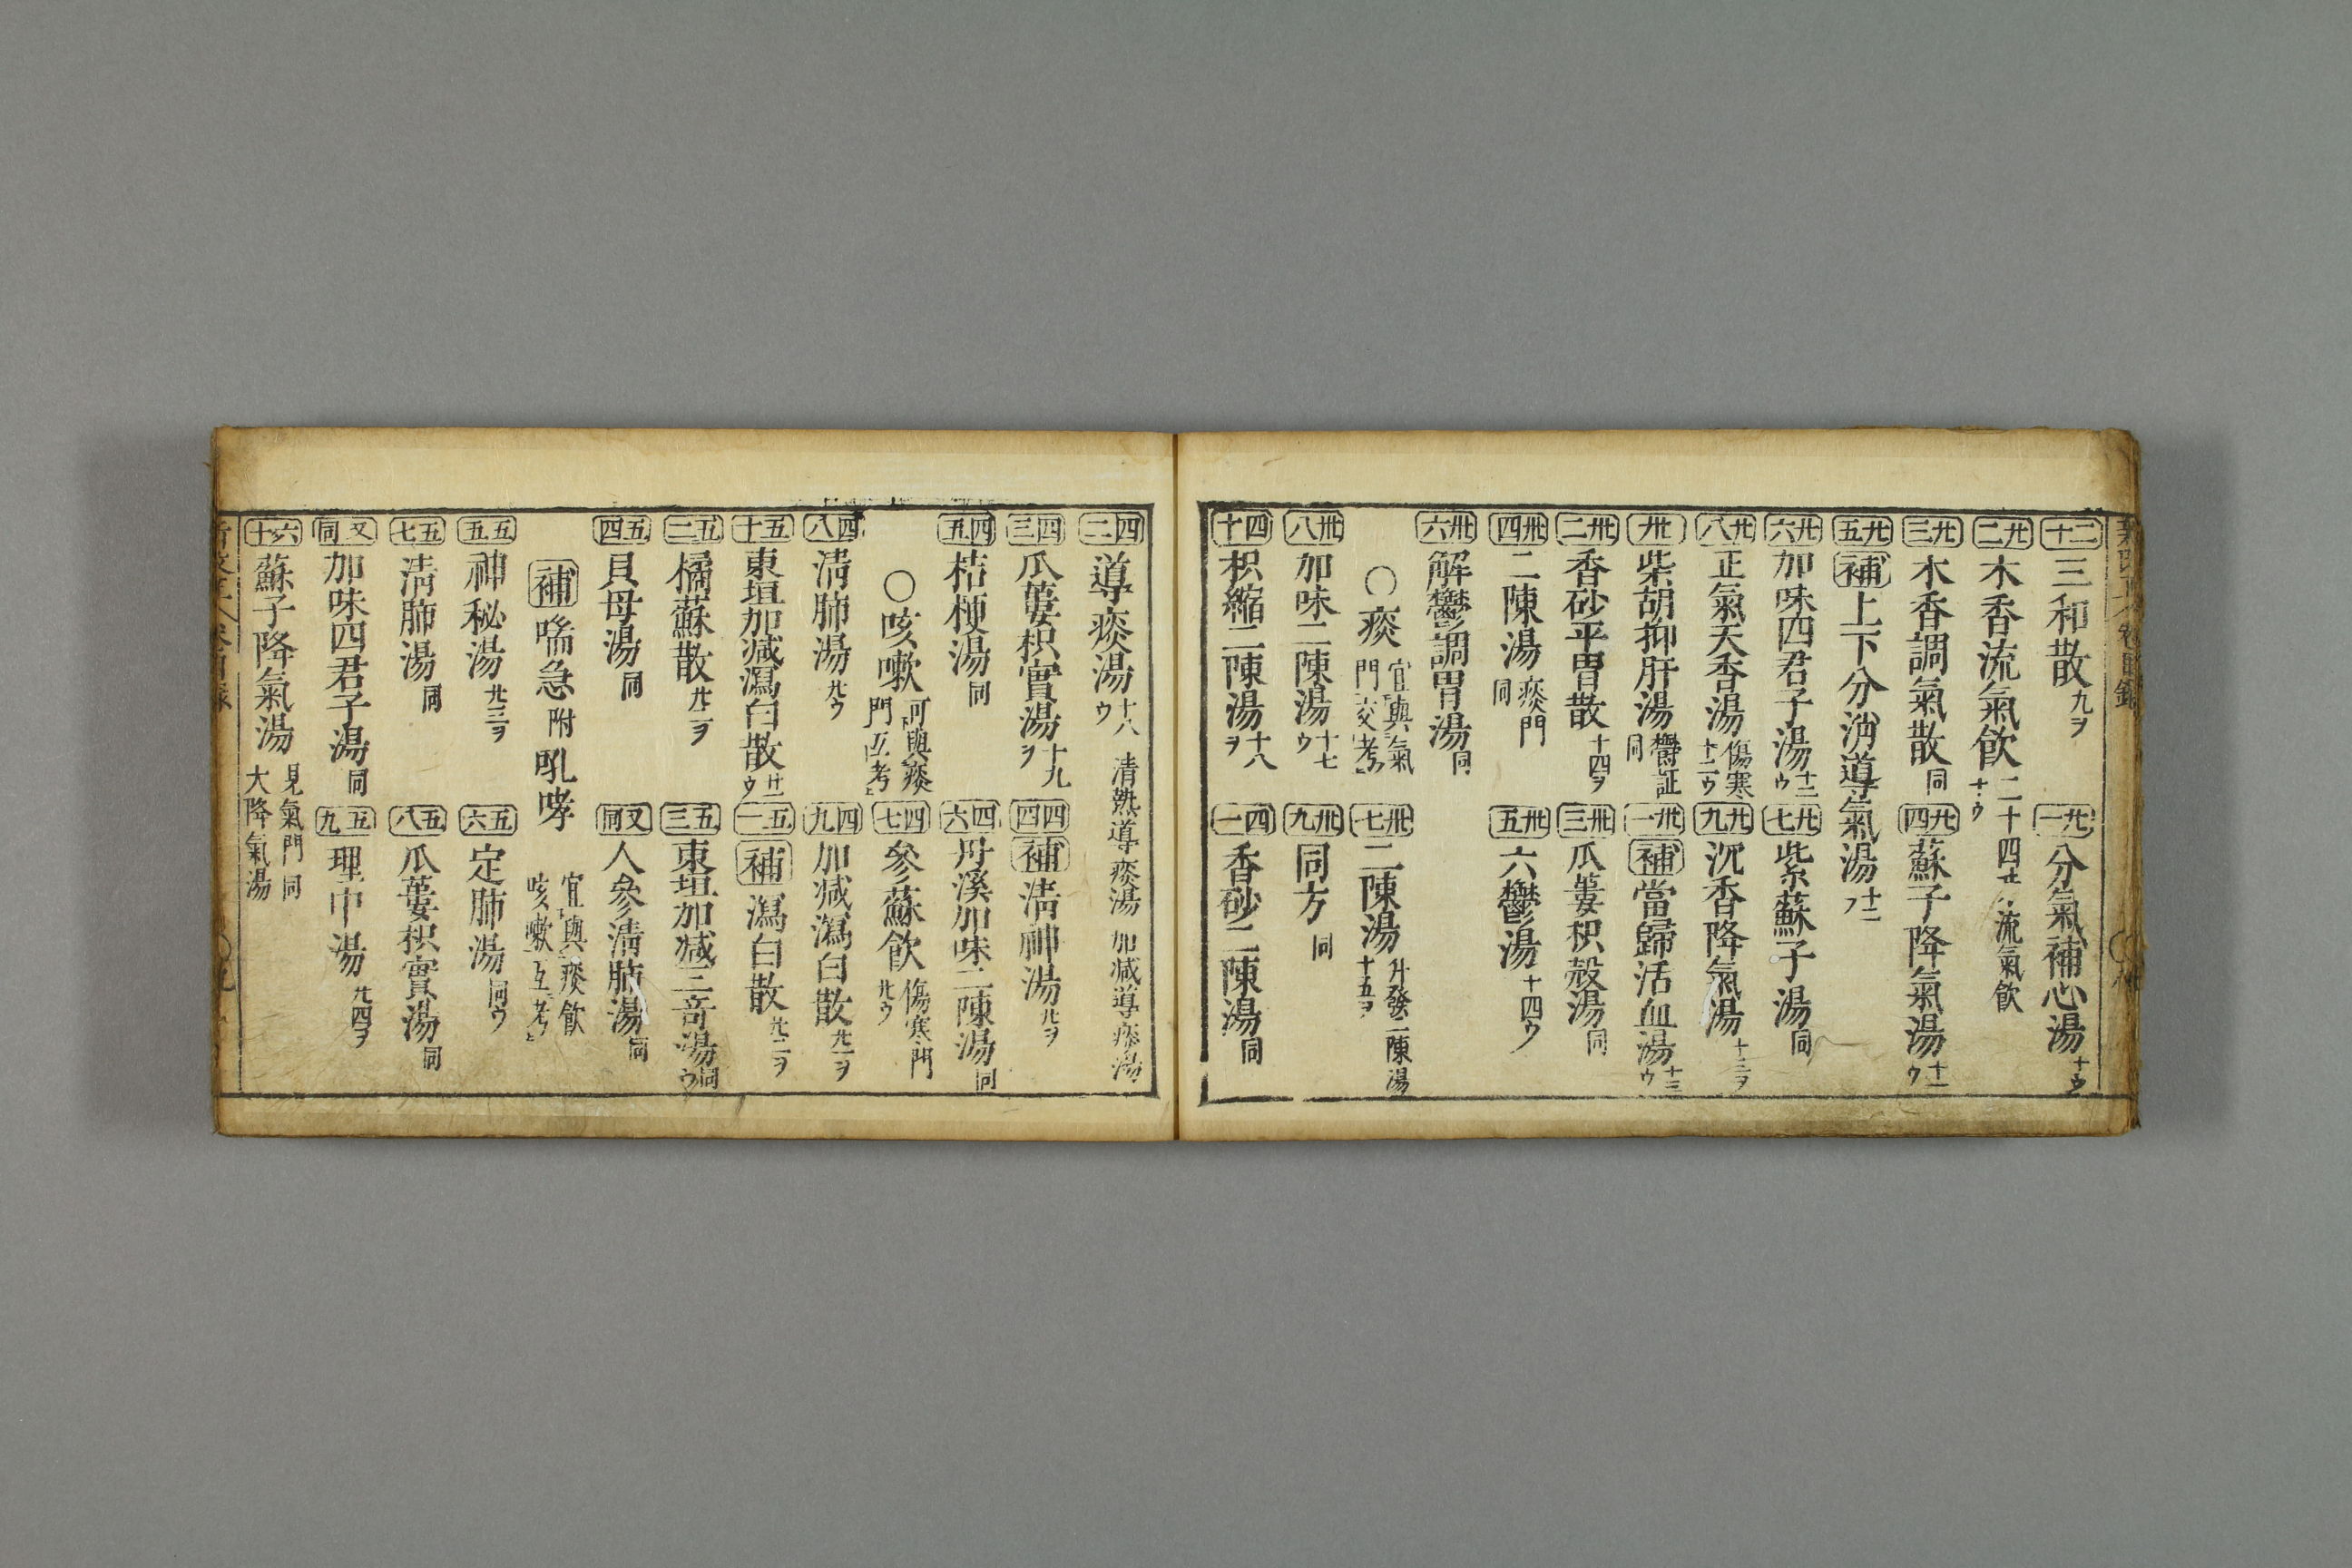 二十 三和散 九ヲ 廿一 分氣補心湯 十ウ
廿二 木香流氣飲 十ウ 二十四 流氣飲
廿三 木香調氣散 同 廿四 蘇子降氣湯 十一ウ
廿五 補 上下分消導氣湯 十二
廿六 加味四君子湯 十二ウ 廿七 紫蘇子湯 同
廿八 正氣天香湯 傷寒十二ウ 廿九 沉香降氣湯 十三ヲ
卅 柴胡抑肝湯 欝証同 卅一 補 當歸活血湯 十三ウ
卅二 香砂平胃散 十四ヲ 卅三 瓜蔞枳殼湯 同
卅四 二陳湯 痰門同 卅五 六鬱湯 十四ウ
卅六 解鬱調胃湯 同
○痰 宜與氣門交考 卅七 二陳湯 升發二陳湯 十五ヲ
卅八 加味二陳湯 十七ウ 卅九 同方 同
四十 枳縮二陳湯 十八ヲ 四一 香砂二陳湯 同
四二 導痰湯 十八ウ 清熱導痰湯 加减導痰湯
四三 瓜蔞枳實湯 十九ヲ 四四 補 清神湯 廿ヲ
四五 桔梗湯 同 四六 丹溪加味二陳湯 同
○咳嗽 可與痰門互考 四七 參蘇飲 傷寒門 廿ウ
四八 清肺湯 廿ウ 四九 加减瀉白散 廿一ヲ
五十 東垣加减瀉白散 廿一ウ 五一 補 瀉白散 廿二ヲ
五二 橘蘇散 廿二ヲ 五三 東垣加减三奇湯 同ウ
五四 貝母湯 同 又同 人參清肺湯 同
補 喘急 附 吼哮 宜與痰飲咳嗽互考
五五 神秘湯 廿三ヲ 五六 定肺湯 同ウ
五七 清肺湯 同 五八 瓜蔞枳實湯 同
又同 加味四君子湯 同 五九 理中湯 廿四ヲ
六十 蘇子降氣湯 見氣門 同 大降氣湯